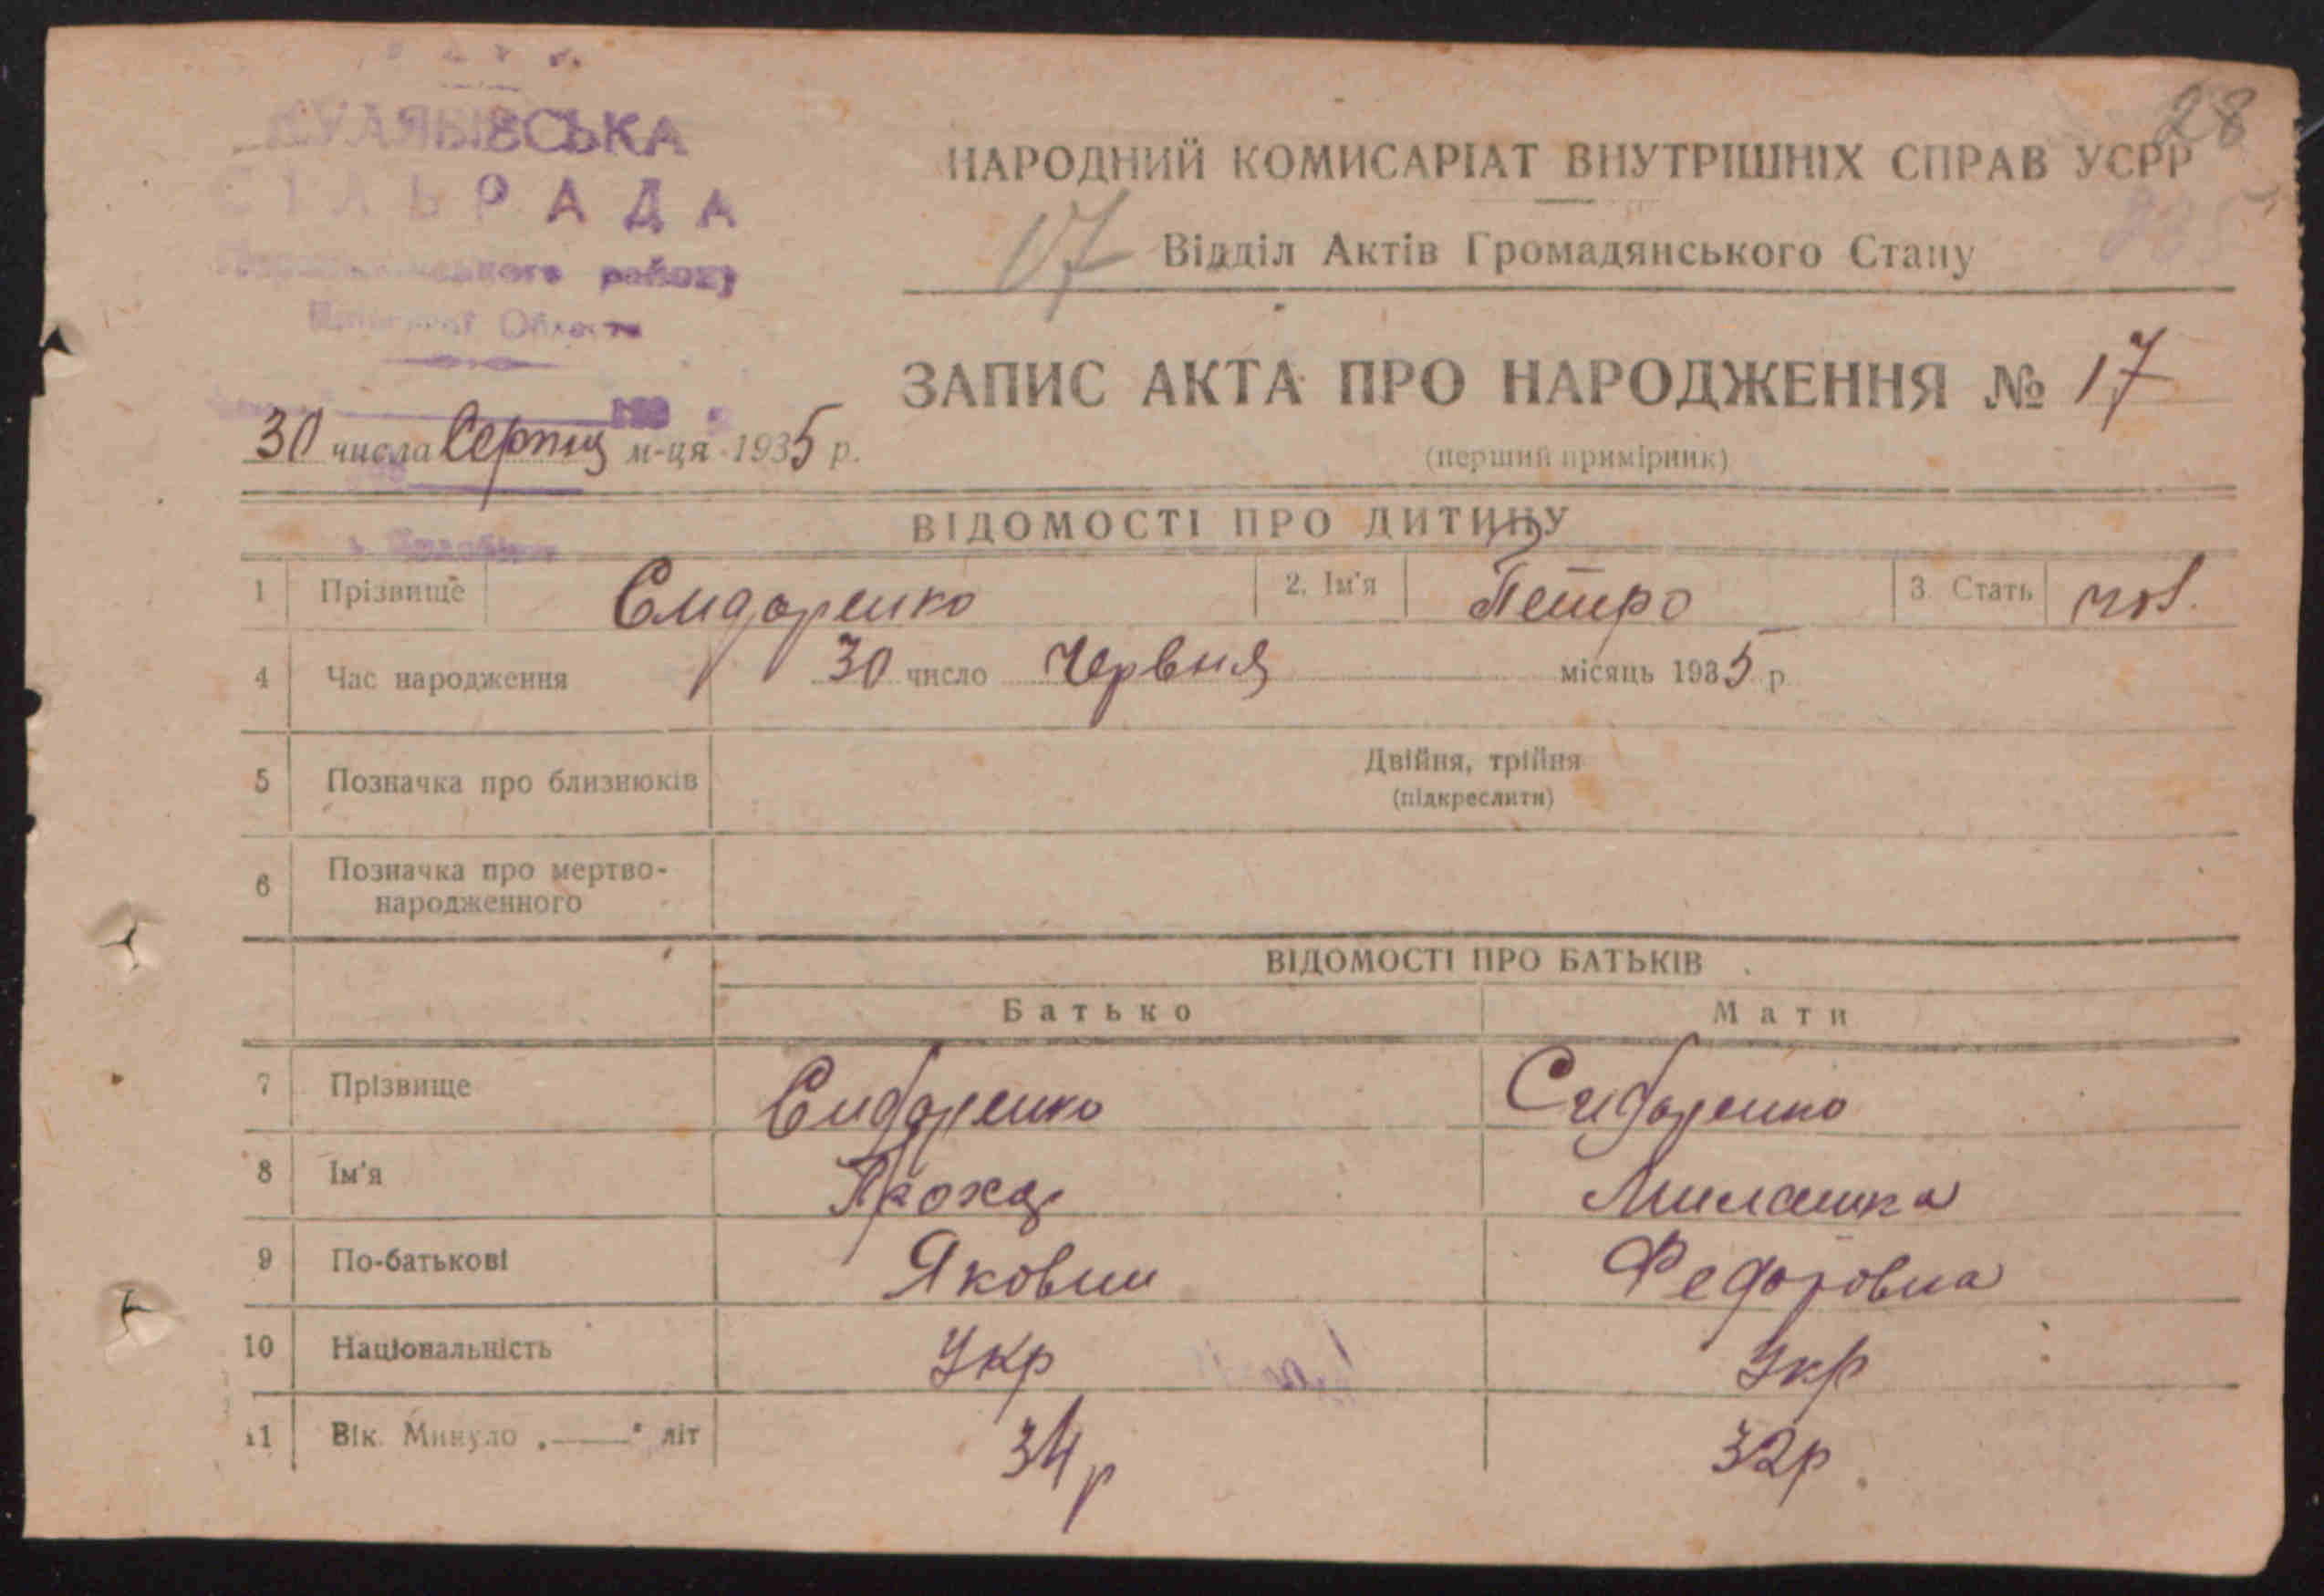 28
КУЛЯБІВСЬКА
СІЛЬРАДА
району
Області
НАРОДНИЙ КОМИСАРІАТ ВНУТРІШНІХ СПРАВ УСРР
17 Відділ Актів Громадянського Стану
ЗАПИС АКТА ПРО НАРОДЖЕННЯ № 17
(перший примірник)
30 числа Серпня м-ця 1935 р.
ВІДОМОСТІ ПРО ДИТИНУ
1 Прізвище Сидоренко 2. Ім'я Петро 3. Стать чол.
4 Час народження 30 число Червня місяць 1935 р.
5 Позначка про близнюків Двійня, трійня
(підкреслити)
6 Позначка про мертво-
народженного
ВІДОМОСТІ ПРО БАТЬКІВ
Батько Мати
7 Прізвище Сидоренко Сидоренко
8 Ім'я Милашка
9 По-батькові Якович Федоровна
10 Національність Укр Укр
11 Вік. Минуло „ —— " літ 34 р 32 р.